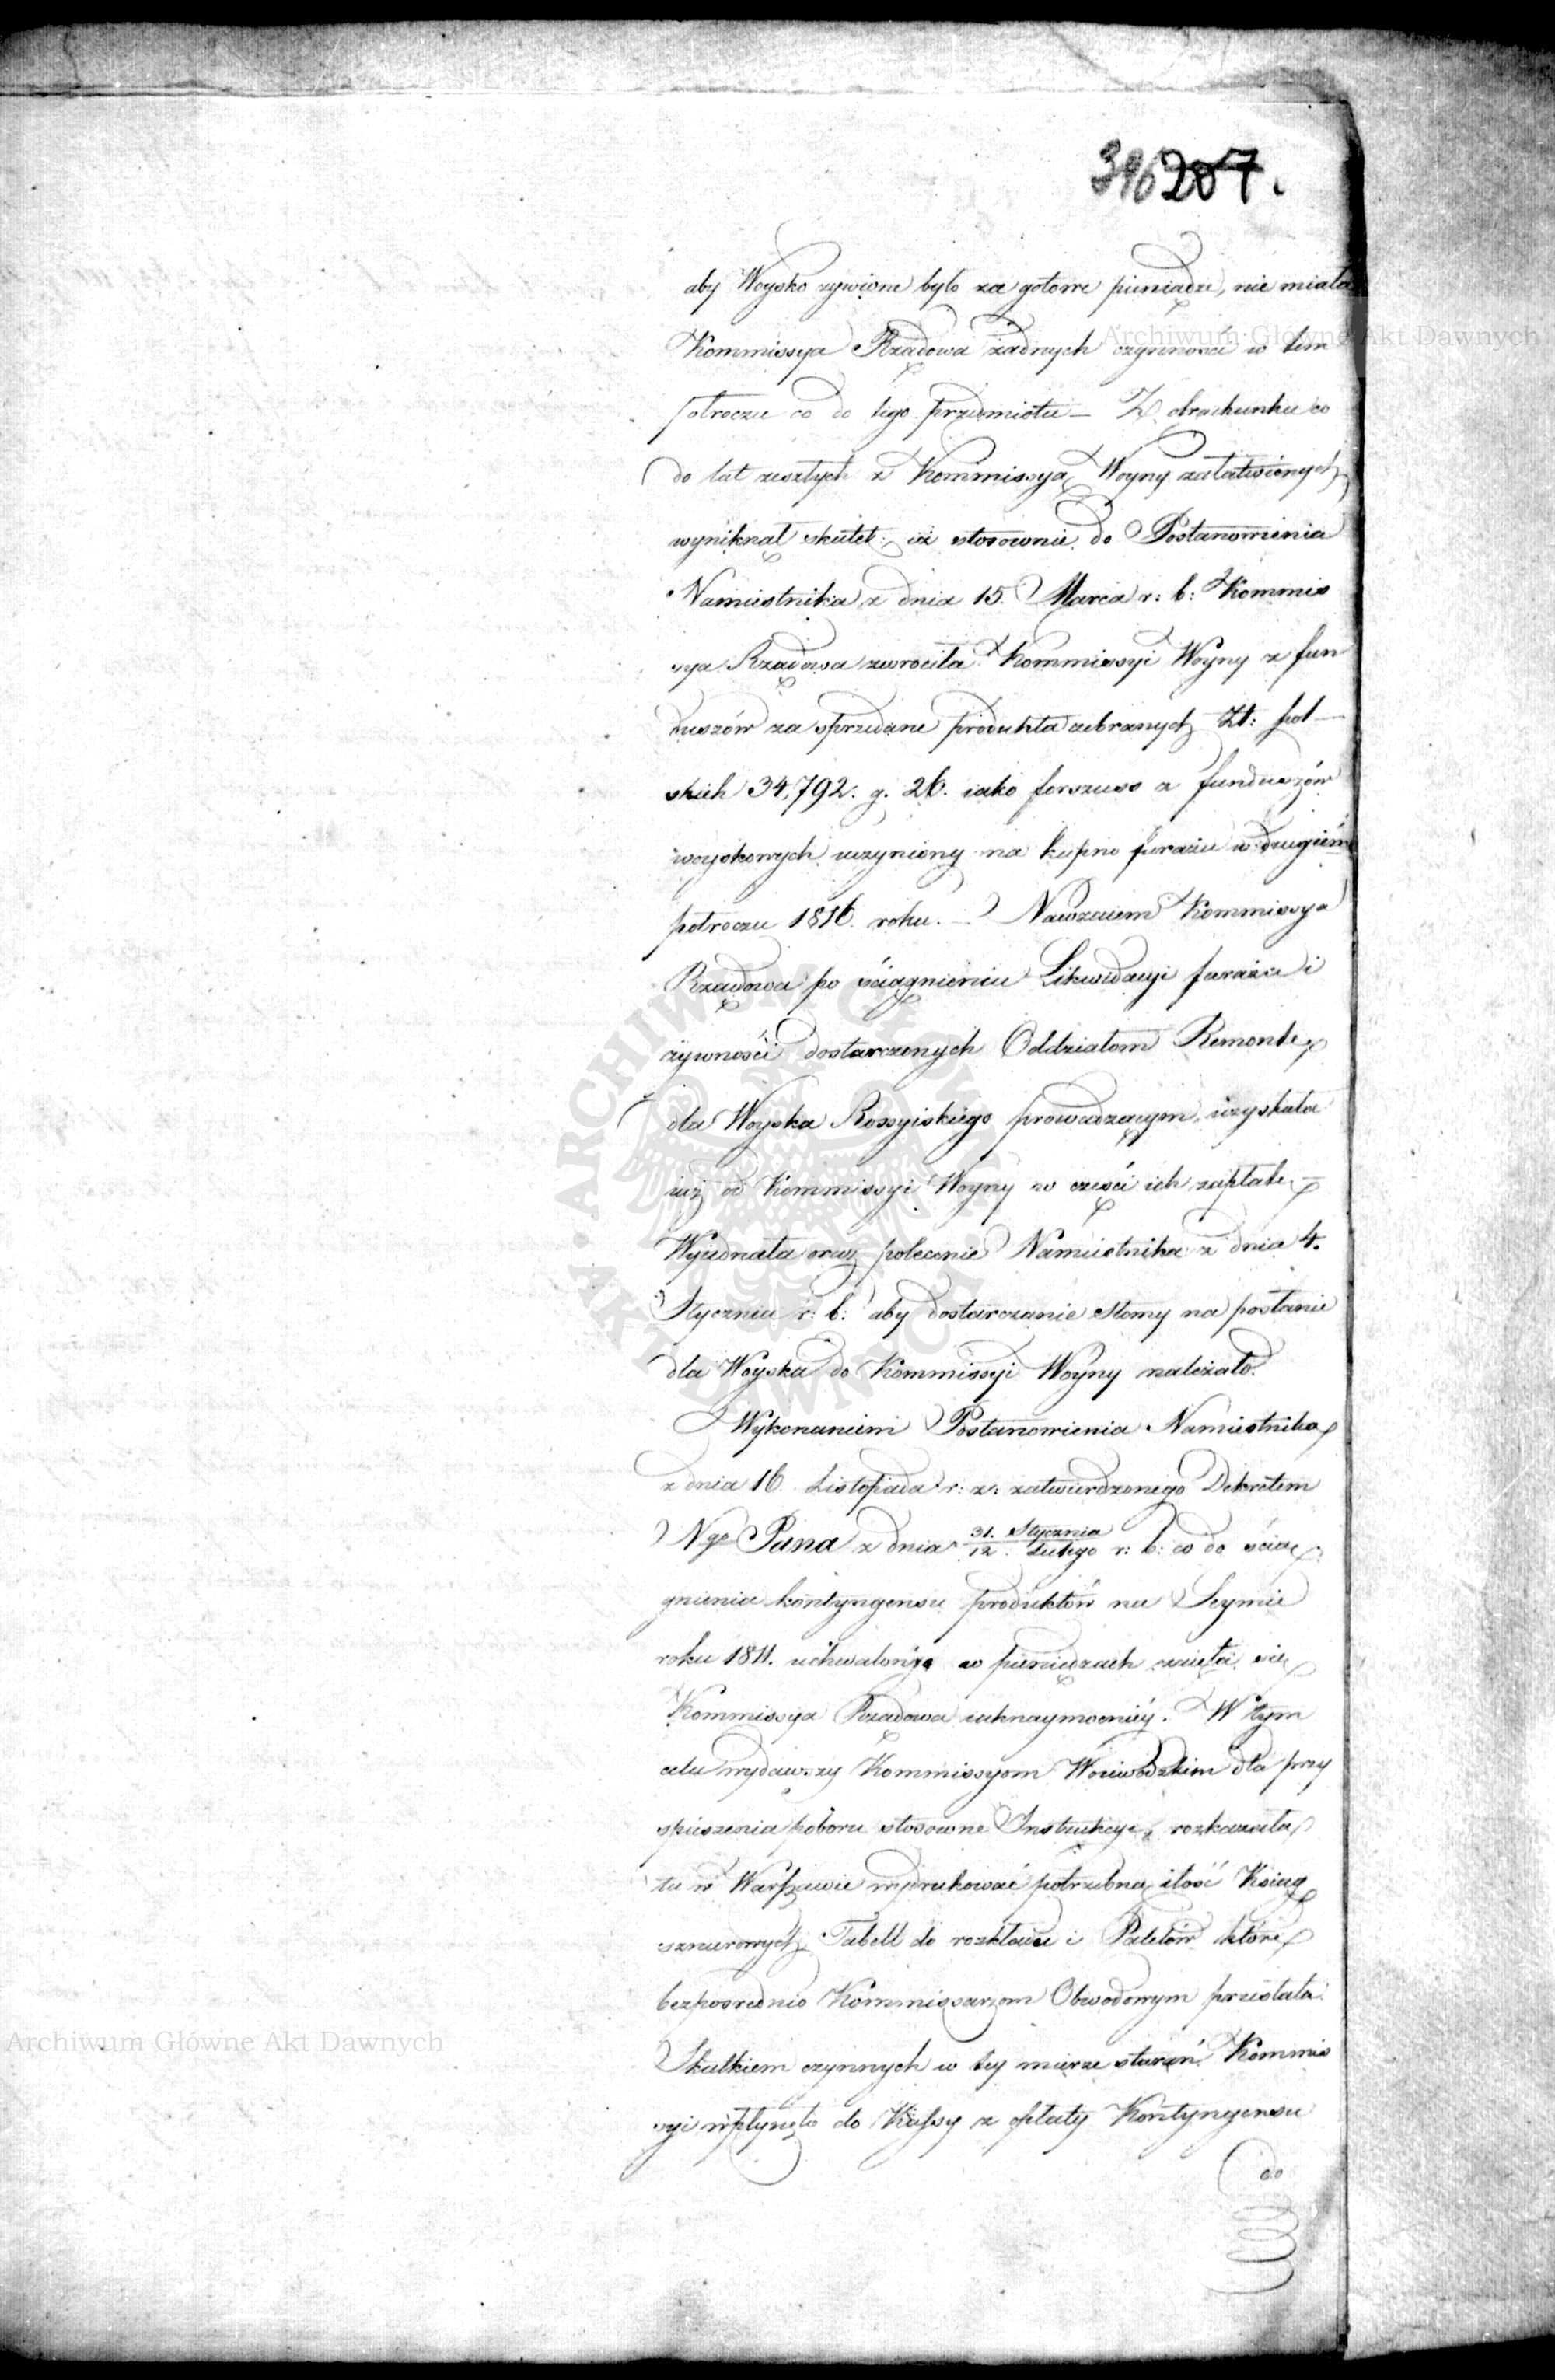 396 287.
aby Woysko żywione było za gotowe pieniądze, nie miała
Kommissya Rządowa żadnych czynności w tem
półroczu co do tego przedmiotu — Z obrachunku co
do lat zeszłych z Kommissyą Woyny załatwionych,
wyniknął skutek: iż stosownie do Postanowienia
Namiestnika z dnia 15. Marca r: b: Kommis
sya Rządowa zwrociła Kommissyi Woyny z fun
duszów za sprzedane produkta zebranych Zł: pol-
skich 34,792. g. 26. iako forszuss z funduszów
woyskowych uczyniony na kupno furażu w drugiem
półroczu 1816. roku. — Nawzaiem Kommissya
Rządowa po ściągnieniu Likwidacyi furażu i
żywności dostarczonych Oddziałom Remontę
dla Woyska Rossyiskiego prowadzącym, uzyskała
iuż od Kommissyi Woyny w części ich zapłatę. —
Wyiednała oraz polecenie Namiestnika z dnia 4.
Stycznia r: b: aby dostarczanie słomy na posłanie
dla Woyska do Kommissyi Woyny należało.
Wykonaniem Postanowienia Namiestnika
z dnia 16 Listopada r: z: zatwierdzonego Dekretem
Ngo Pana z dnia 31. Stycznia / 12. Lutego r: b: co do ścią
gnienia kontyngensu produktów na Seymie
roku 1811. uchwalonego w pieniądzach zaięła się
Kommissya Rządowa iaknaymocniéy. W tym
celu wydawszy Kommissyom Woiewódzkim dla przy
spieszenia poboru stosowne Instrukcye, rozkazała
tu w Warszawie wydrukować potrzebną ilość Ksiąg
sznurowych, Tabell do rozkładu i Paletów które
bezpośrednio Kommissarzom Obwodowym przesłała.
Skutkiem czynnych w tey mierze starań Kommis
syi wpłynęło do Kassy z opłaty Kontyngensu
do
Archiwum Główne Akt Dawnych
Archiwum Główne Akt Dawnych
ARCHIWUM GŁÓWNE AKT DAWNYCH